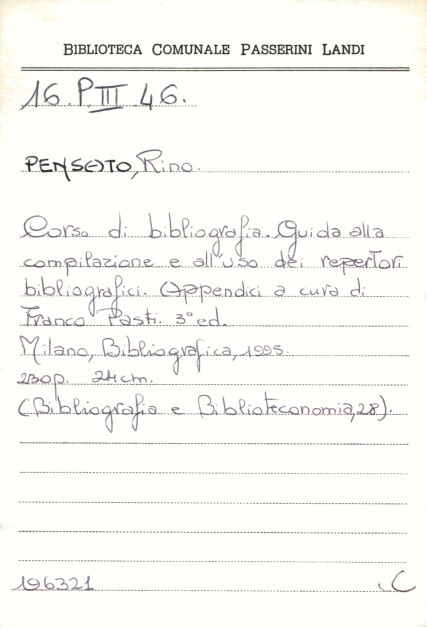 BIBLIOTECA COMUNALE PASSERINI LANDI
16.P.III 46.
PENSATO, Rino.
Corso di bibliografia. Guida alla
compilazione e all'uso dei repertori
bibliografici. Appendici a cura di
Franco Pasti. 3° ed.
Milano, Bibliografica, 1995.
230p. 24cm.
(Bibliografia e Biblioteconomia, 28).
196321 C